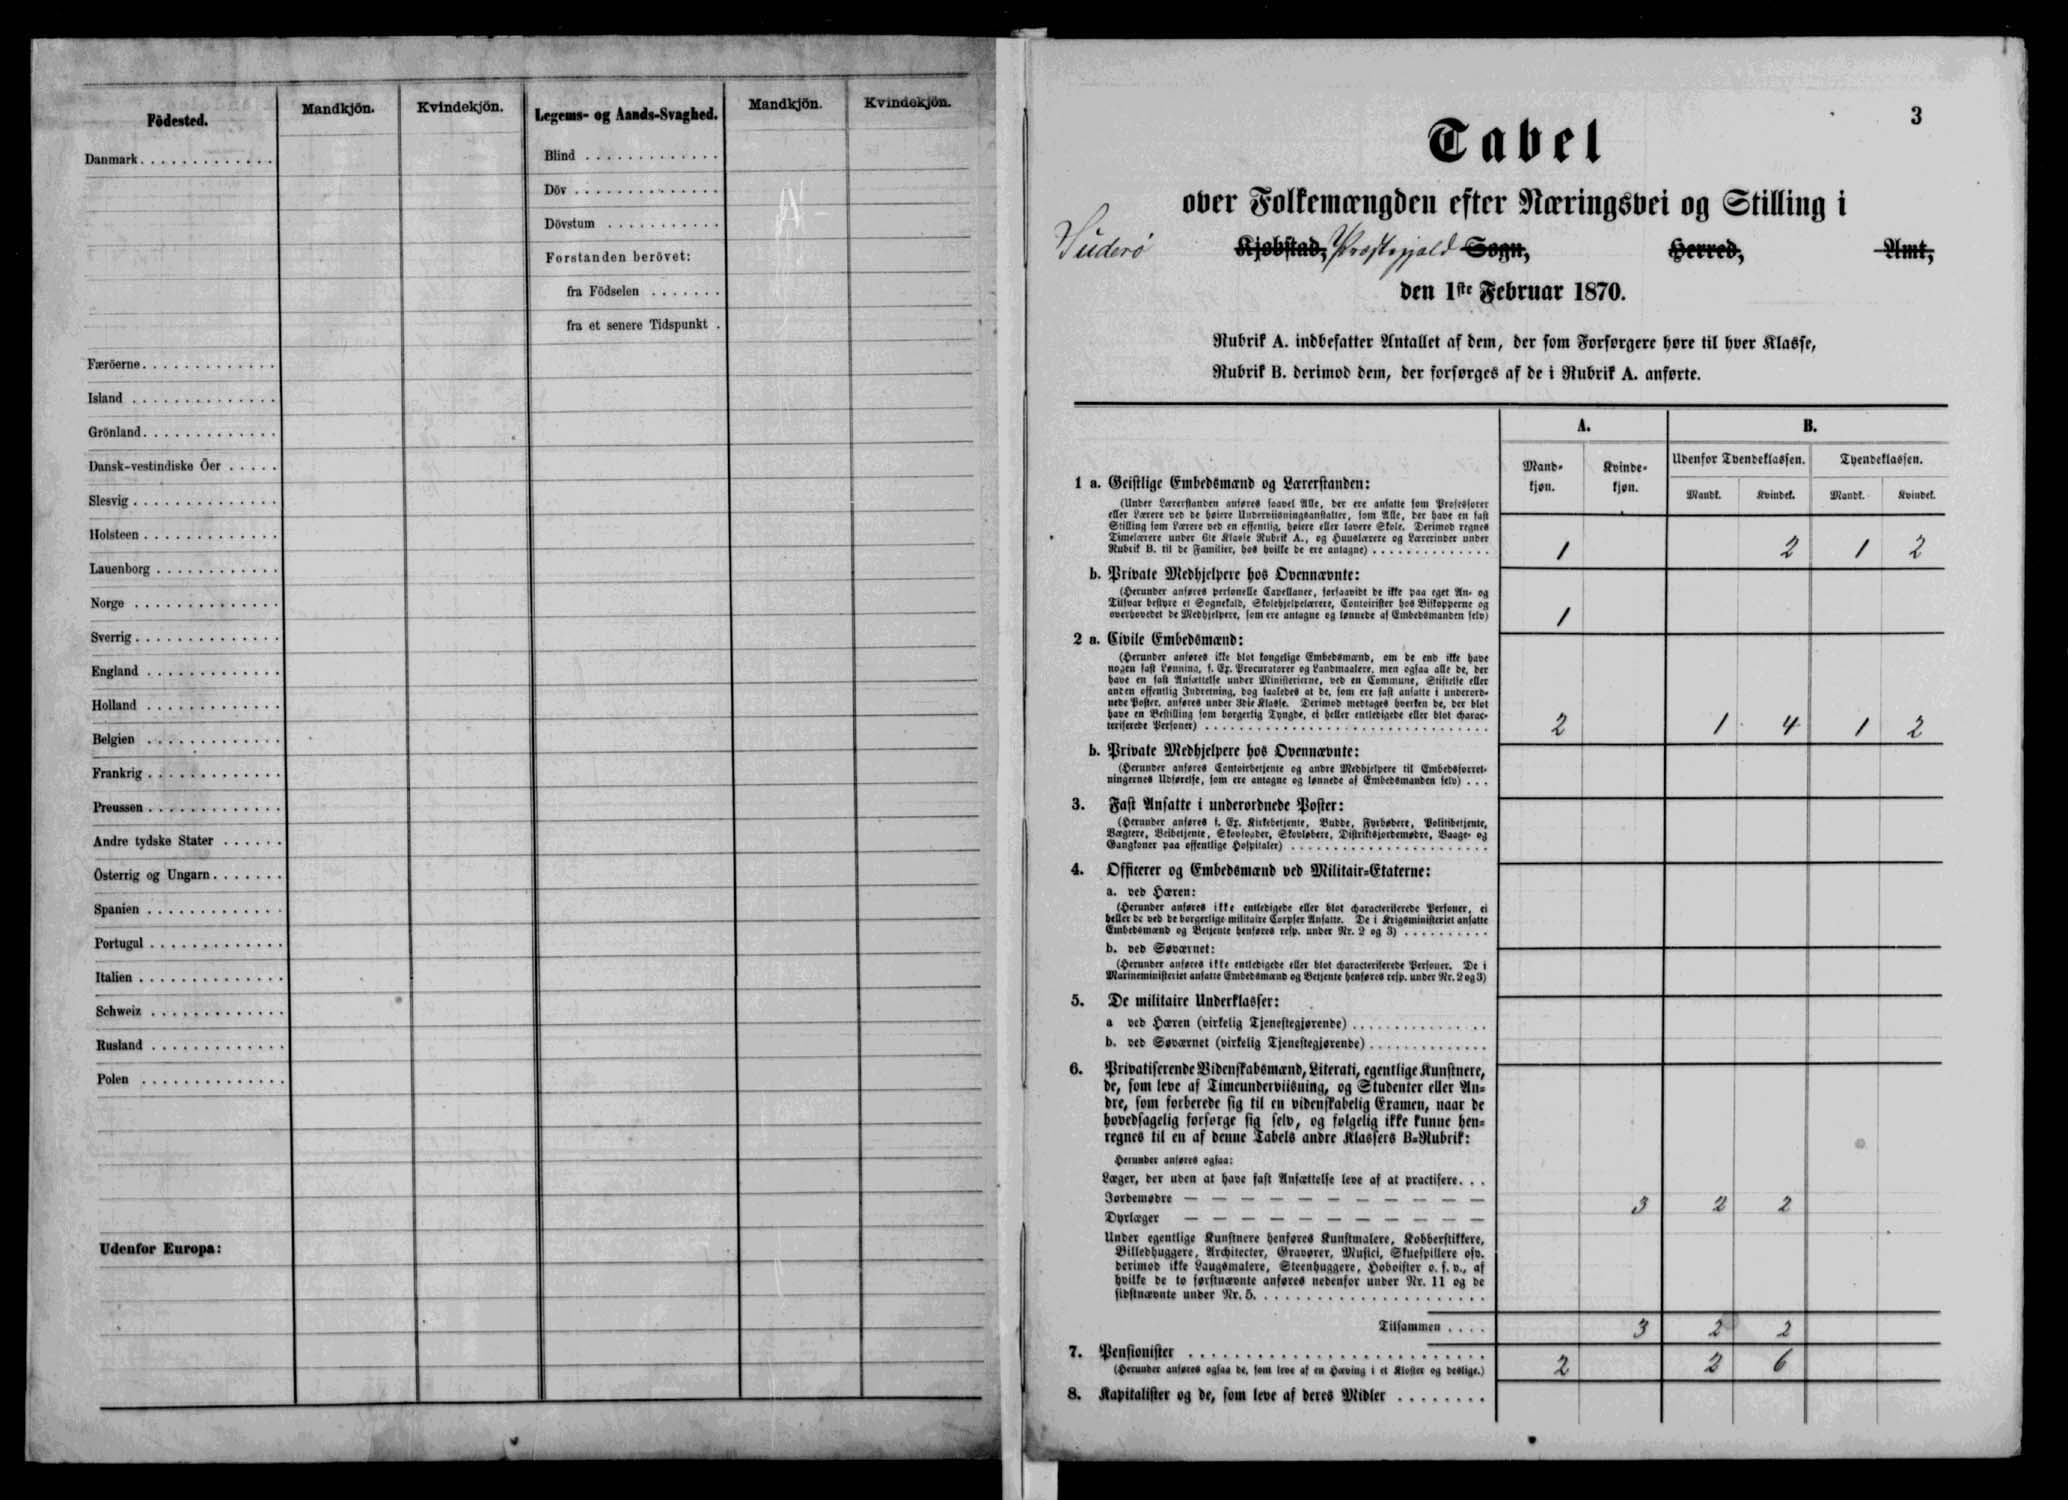 Födested.
Mandkjön.
Kvindekjön.
Legems- og Aands-Svaghed.
Mandkjön.
Kvindekjön.
Danmark
Færöerne
Island
Grönland
Dansk-vestindiske Öer
Slesvig
Holsteen
Lauenborg
Norge
Sverrig
England
Holland
Belgien
Frankrig
Preussen
Andre tydske Stater
Österrig og Ungarn
Spanien
Portugal
Italien
Schweiz
Rusland
Polen
Udenfor Europa:
Blind
Döv
Dövstum
Forstanden berövet:
fra Födselen
fra et senere Tidspunkt
3
Tabel
over Folkemængden efter Næringsvei og Stilling i
Suderö Kjøbstad, Præstegjæld Sogn, Herred, Amt,
den 1ste Februar 1870.
Rubrik A. indbefatter Antallet af dem, der som Forsørgere høre til hver Klasse,
Rubrik B. derimod dem, der forsørges af de i Rubrik A. anførte.
A.
B.
Mand-
kjøn.
Kvinde-
kjøn.
Udenfor Tyendeklassen.
Tyendeklassen.
Mandk.
Kvindek.
Mandk.
Kvindek.
1 a. Geistlige Embedsmænd og Lærerstanden:
(Under Lærerstanden anføres saavel Alle, der ere ansatte som Professorer
eller Lærere ved de høiere Underviisningsanstalter, som Alle, der have en fast
Stilling som Lærere ved en offentlig, høiere eller lavere Skole. Derimod regnes
Timelærere under 6te Klasse Rubrik A., og Huuslærere og Lærerinder under
Rubrik B. til de Familier, hos hvilke de ere antagne) 1 2 1 2
b. Private Medhjelpere hos Ovennævnte:
(Herunder anføres personelle Capellaner, forsaavidt de ikke paa eget An- og
Tilsvar bestyre et Sognekald, Skolehjelpelærere, Contoirister hos Biskopperne og
overhovedet de Medhjelpere, som ere antagne og lønnede af Embedsmanden selv) 1
2 a. Civile Embedsmænd:
(Herunder anføres ikke blot kongelige Embedsmænd, om de end ikke have
nogen fast Lønning, f. Ex. Procuratorer og Landmaalere, men ogsaa alle de, der
have en fast Ansættelse under Ministerierne, ved en Commune, Stiftelse eller
anden offentlig Indretning, dog saaledes at de, som ere fast ansatte i underord-
nede Poster, anføres under 3die Klasse. Derimod medtages hverken de, der blot
have en Bestilling som borgerlig Tyngde, ei heller entledigede eller blot charac-
teriserede Personer) 2 1 4 1 2
b. Private Medhjelpere hos Ovennævnte:
(Herunder anføres Contoirbetjente og andre Medhjelpere til Embedsforret-
ningernes Udførelse, som ere antagne og lønnede af Embedsmanden selv)
3. Fast Ansatte i underordnede Poster:
(Herunder anføres f. Ex. Kirkebetjente, Budde, Fyrbødere, Politibetjente,
Vægtere, Veibetjente, Skovfogder, Skovløbere, Distriktsjordemødre, Vaage- og
Gangkoner paa offentlige Hospitaler)
4. Officerer og Embedsmænd ved Militair-Etaterne:
a. ved Hæren:
(Herunder anføres ikke entledigede eller blot characteriserede Personer, ei
heller de ved de borgerlige militaire Corpser Ansatte. De i Krigsministeriet ansatte
Embedsmænd og Betjente henføres resp. under Nr. 2 og 3)
b. ved Søværnet:
(Herunder anføres ikke entledigede eller blot characteriserede Personer. De i
Marineministeriet ansatte Embedsmænd og Betjente henføres resp. under Nr. 2 og 3)
5. De militaire Underklasser:
a ved Hæren (virkelig Tjenestegjørende)
b. ved Søværnet (virkelig Tjenestegjørende)
6. Privatiserende Videnskabsmænd, Literati, egentlige Kunstnere,
de, som leve af Timeunderviisning, og Studenter eller An-
dre, som forberede sig til en videnskabelig Examen, naar de
hovedsagelig forsørge sig selv, og følgelig ikke kunne hen-
regnes til en af denne Tabels andre Klassers B-Rubrik:
Herunder anføres ogsaa:
Læger, der uden at have fast Ansættelse leve af at practisere
Jordemødre — — — — — — — — — — — 3 2 2
Dyrlæger — — — — — — — — — — —
Under egentlige Kunstnere henføres Kunstmalere, Kobberstikkere,
Billedhuggere, Architecter, Gravører, Musici, Skuespillere osv.
derimod ikke Laugsmalere, Steenhuggere, Hoboister o. s. v., af
hvilke de to førstnævnte anføres nedenfor under Nr. 11 og de
sidstnævnte under Nr. 5.
Tilsammen 3 2 2
7. Pensionister 2 2 6
(Herunder anføres ogsaa de, som leve af en Hæving i et Kloster og deslige.)
8. Kapitalister og de, som leve af deres Midler